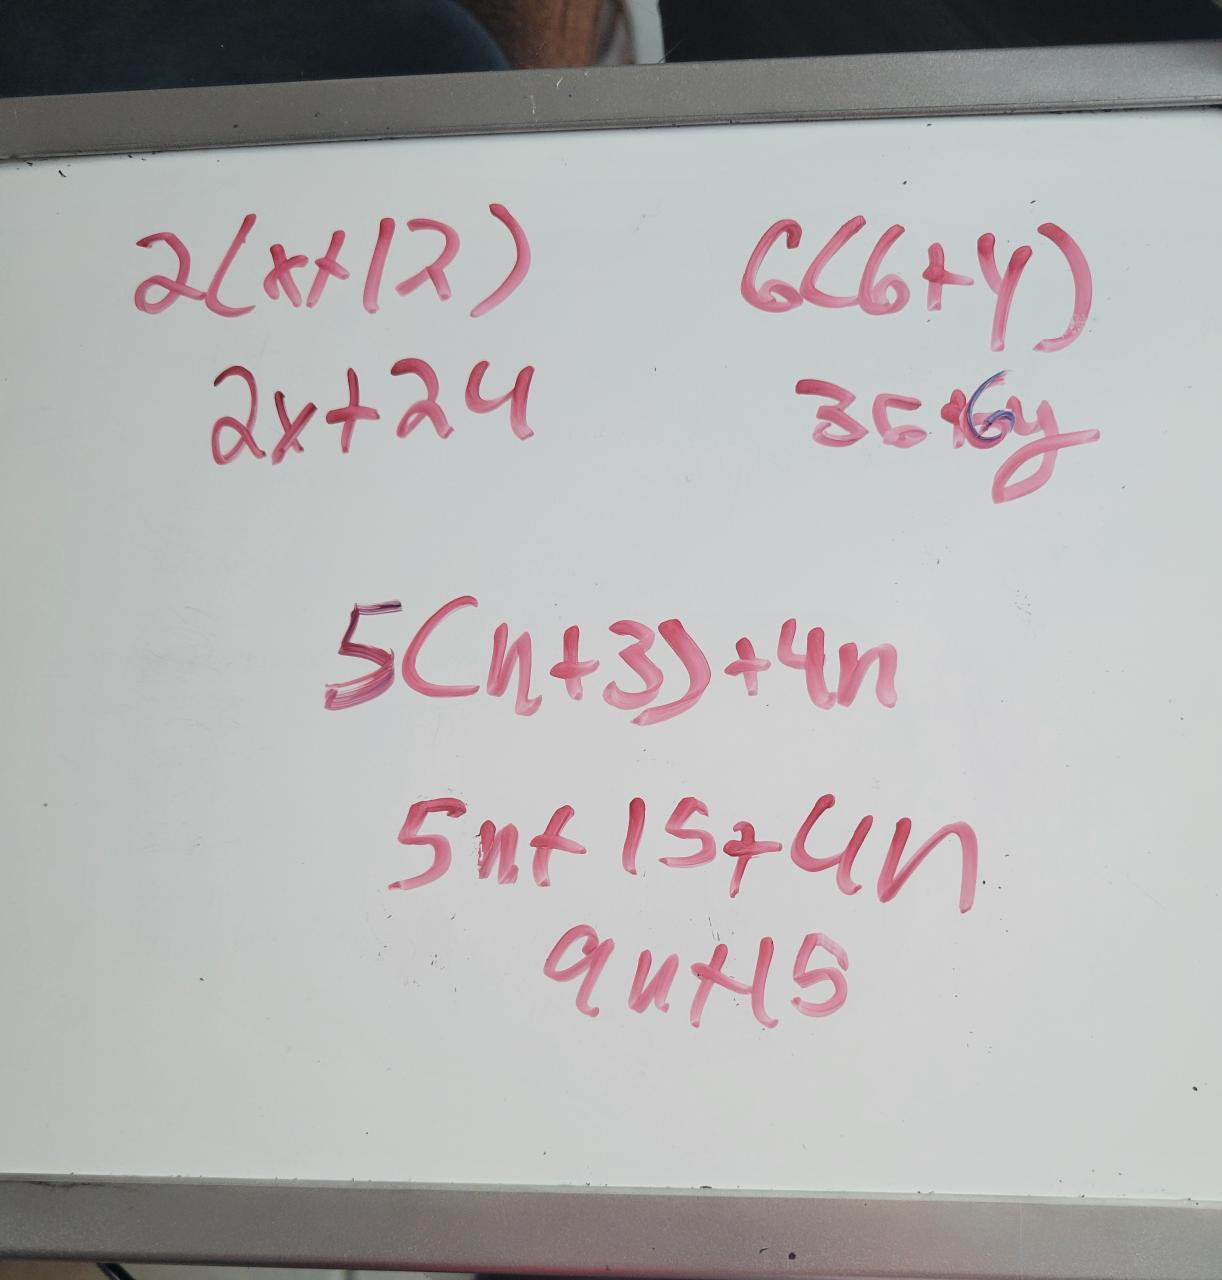 2(x+12)
2x+24
6(6+y)
36+6y
5(n+3)+4n
5n+15+4n
9n+15